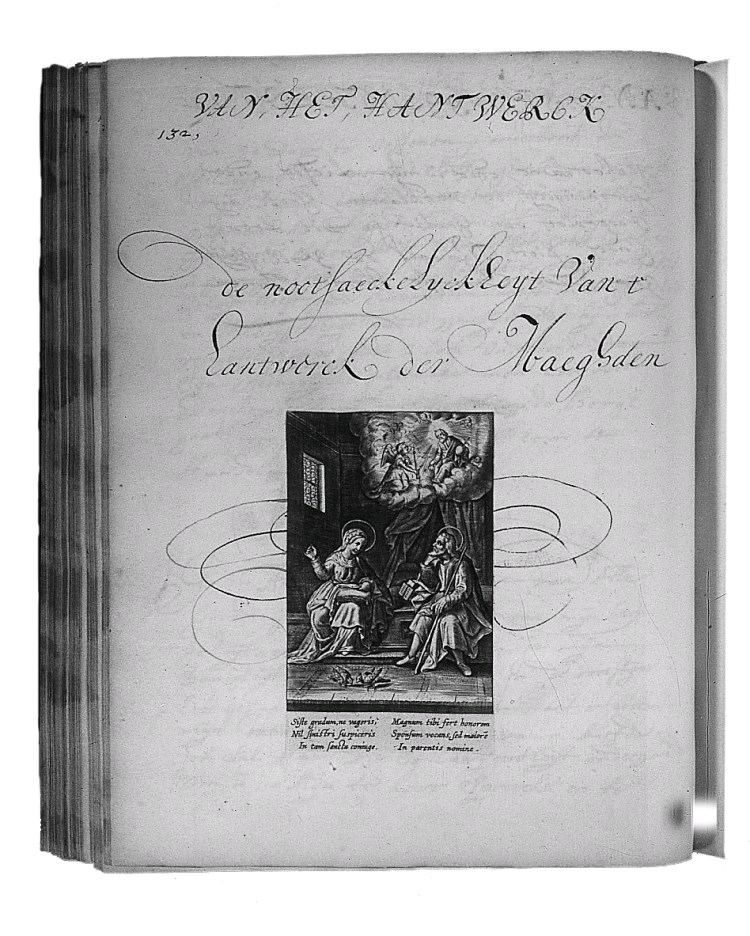 VAN, HET, HANTWERCK
132,
de nootsaeckelyckheyt Van t
hantwerck der Maeghden
Siste gradum, ne vageris;
Nil sinistri suspiceris
In tam sancta coniuge.
Magnum tibi fert honorem
Sponsum vocans, sed maiorē
In parentis nomine.